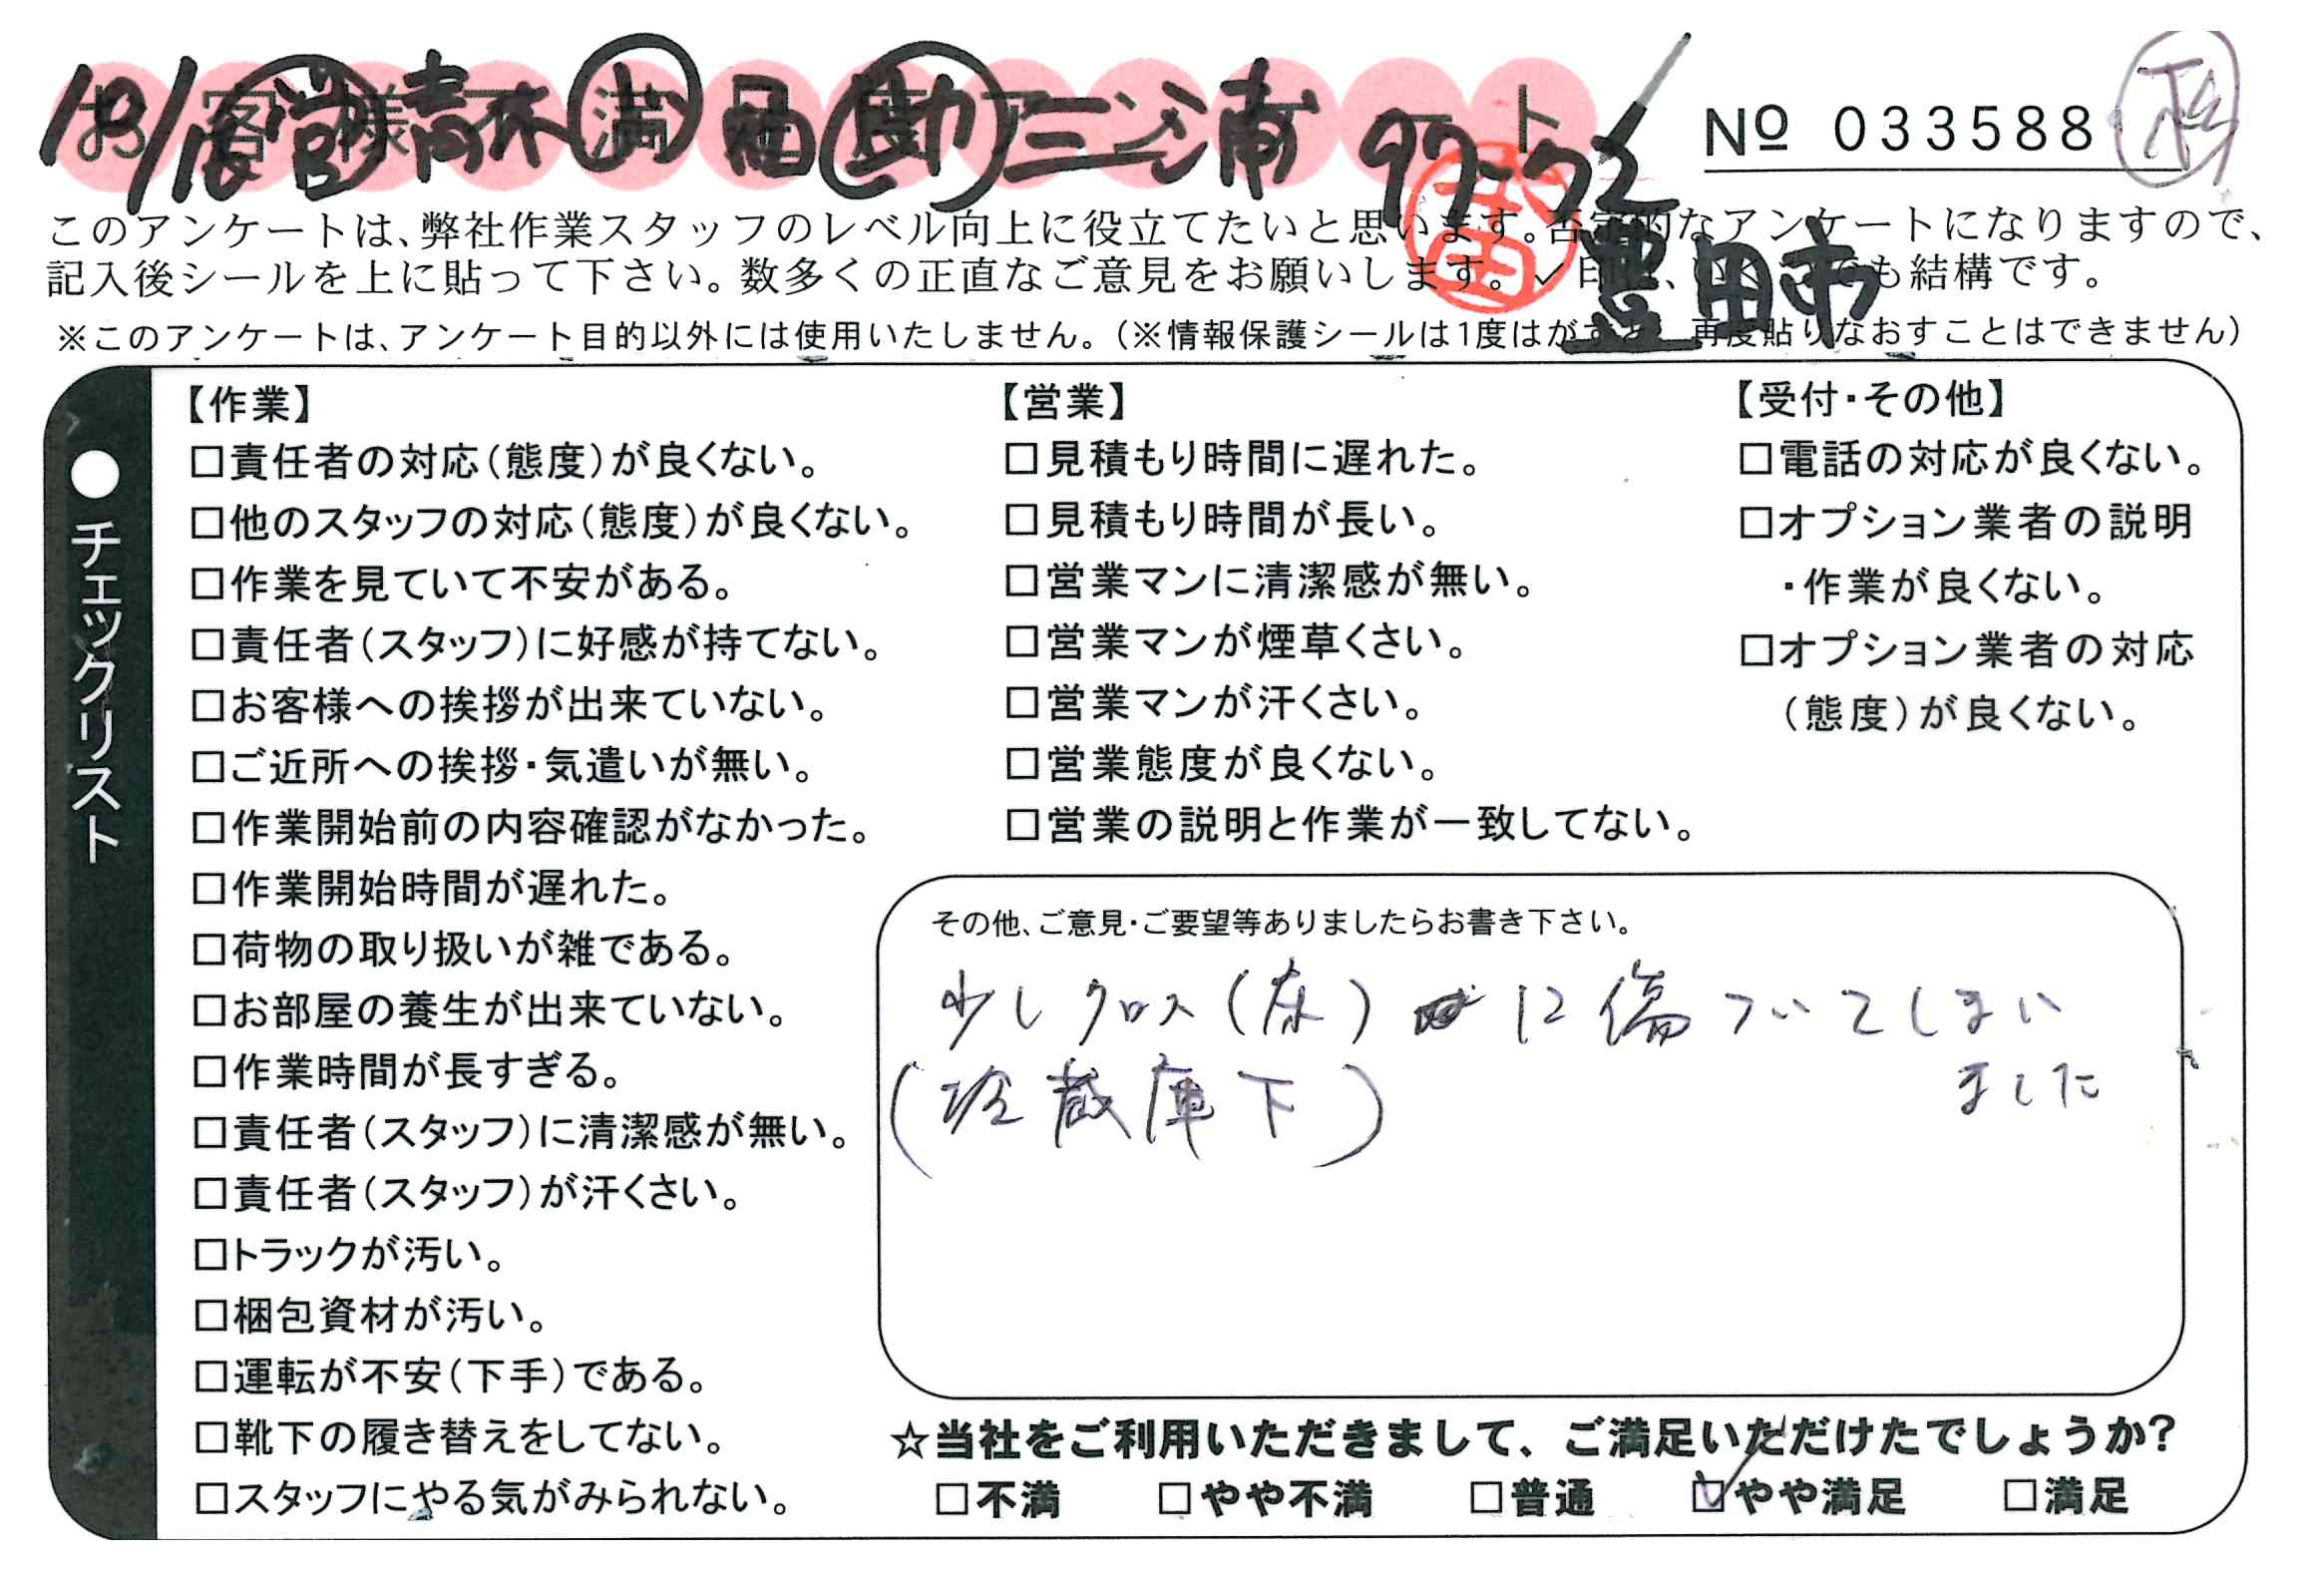 お客様不満足度アンケート
No 033588
豊田市
このアンケートは、弊社作業スタッフのレベル向上に役立てたいと思います。否定的なアンケートになりますので、
記入後シールを上に貼って下さい。数多くの正直なご意見をお願いします。✓印は、いくつでも結構です。
※このアンケートは、アンケート目的以外には使用いたしません。（※情報保護シールは1度はがすと、再度貼りなおすことはできません）
●チェックリスト
【作業】
□責任者の対応（態度）が良くない。
□他のスタッフの対応（態度）が良くない。
□作業を見ていて不安がある。
□責任者（スタッフ）に好感が持てない。
□お客様への挨拶が出来ていない。
□ご近所への挨拶・気遣いが無い。
□作業開始前の内容確認がなかった。
□作業開始時間が遅れた。
□荷物の取り扱いが雑である。
□お部屋の養生が出来ていない。
□作業時間が長すぎる。
□責任者（スタッフ）に清潔感が無い。
□責任者（スタッフ）が汗くさい。
□トラックが汚い。
□梱包資材が汚い。
□運転が不安（下手）である。
□靴下の履き替えをしてない。
□スタッフにやる気がみられない。
【営業】
□見積もり時間に遅れた。
□見積もり時間が長い。
□営業マンに清潔感が無い。
□営業マンが煙草くさい。
□営業マンが汗くさい。
□営業態度が良くない。
□営業の説明と作業が一致してない。
【受付・その他】
□電話の対応が良くない。
□オプション業者の説明
・作業が良くない。
□オプション業者の対応
（態度）が良くない。
その他、ご意見・ご要望等ありましたらお書き下さい。
少しクロス（床）に傷ついてしまい
ました
（冷蔵庫下）
☆当社をご利用いただきまして、ご満足いただけたでしょうか?
□不満 □やや不満 □普通 ☑やや満足 □満足